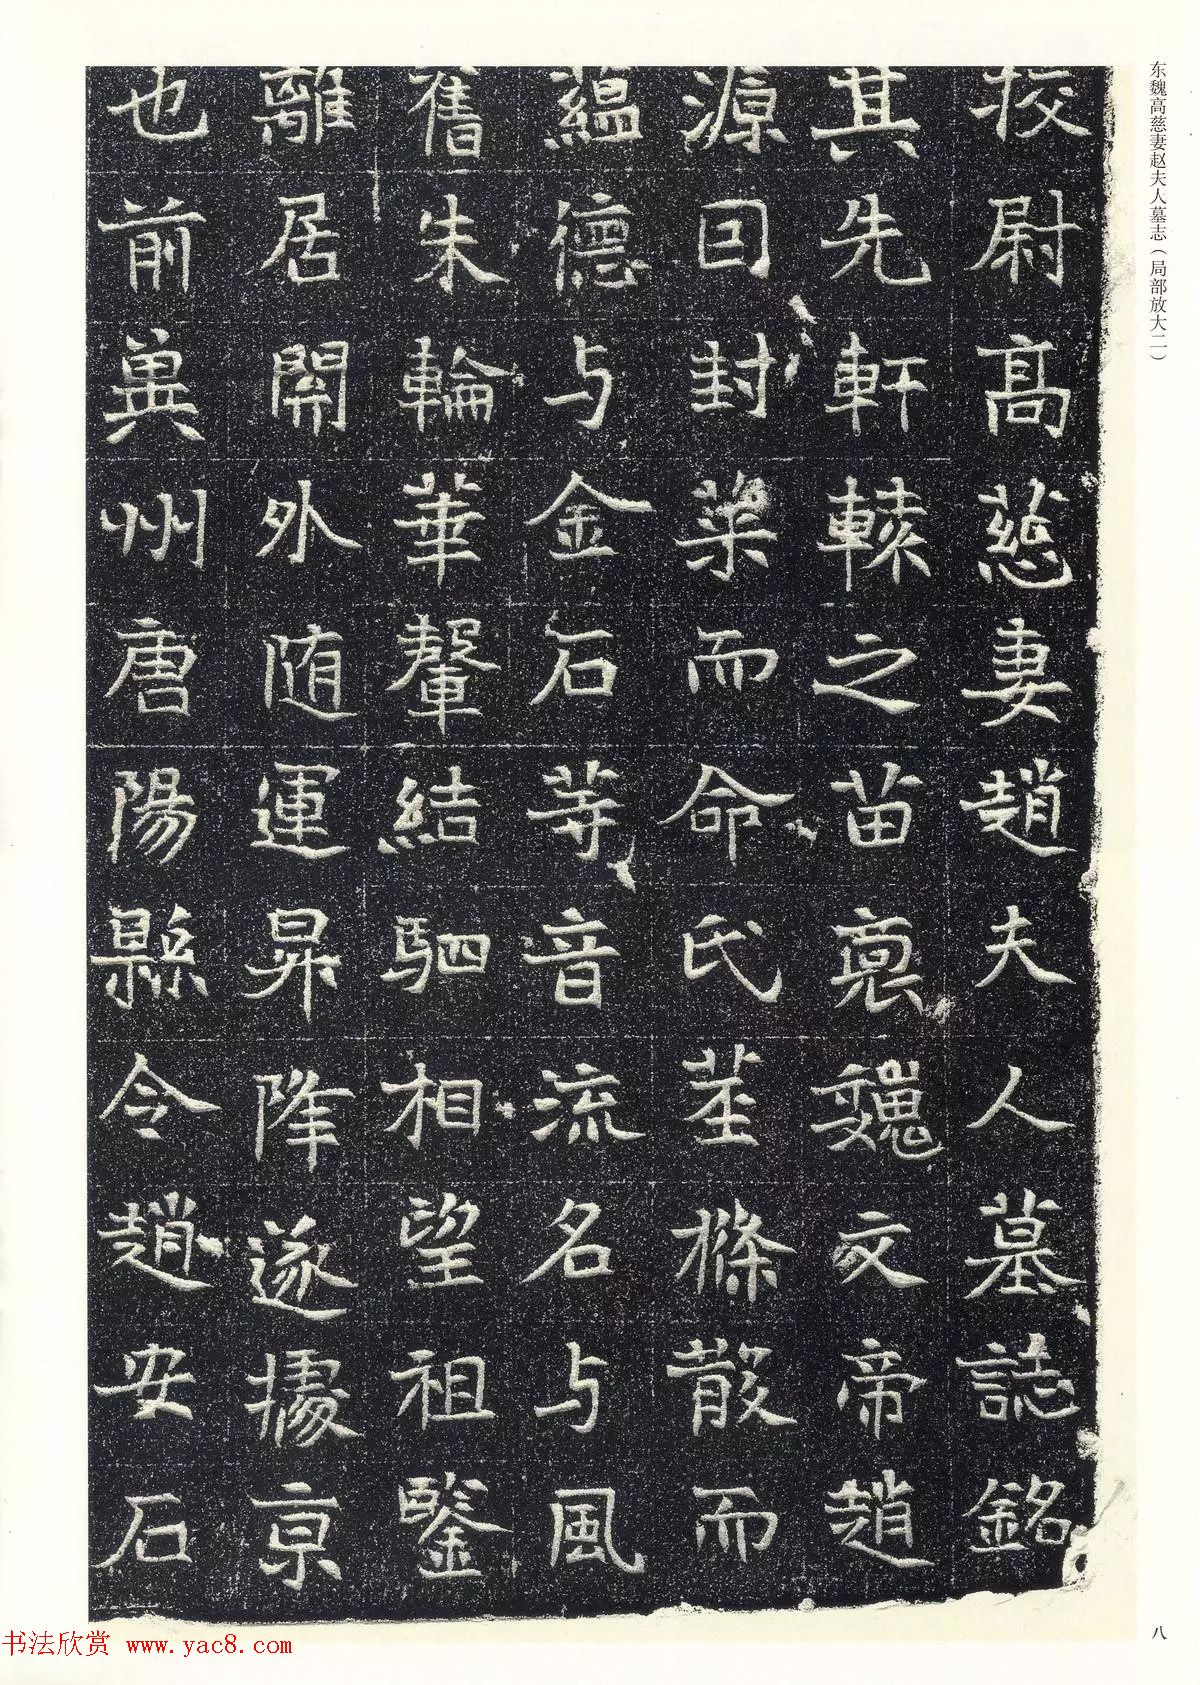 东魏高慈妻赵夫人墓志（局部放大二）
挍尉高慈妻趙夫人墓誌銘
其先軒轅之苗裔魏文帝趙
源囙封菜而命氏莖條散而
蘊德与金石等音流名与風
舊朱輪華輦結駟相望祖鑒
離居開外随運昇降遂據京
也前兾州唐陽縣令趙安石
八
书法欣赏 www.yac8.com